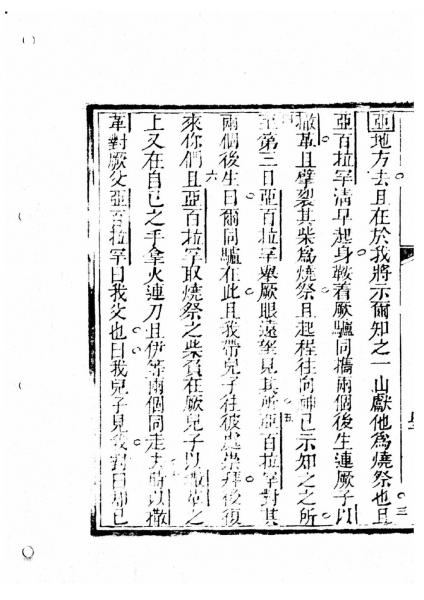 亞地方去且在於我將示爾知之一山獻他爲燒祭也且三
亞百拉罕清早起身鞍着厥驢同攜兩個後生連厥子以
撒革且擘裂其柴爲燒祭且起程往向神已示知之之所
至第三日亞百拉罕舉厥眼遠望見其所五亞百拉罕對其
兩個後生曰爾同驢在此且我帶兒子往彼處崇拜後復
來你們六且亞百拉罕取燒祭之柴負在厥兒子以撒革之
上又在自己之手拿火連刀且伊等兩個同走去時以撒
革對厥父亞百拉罕曰我父也曰我兒子見我對曰那已